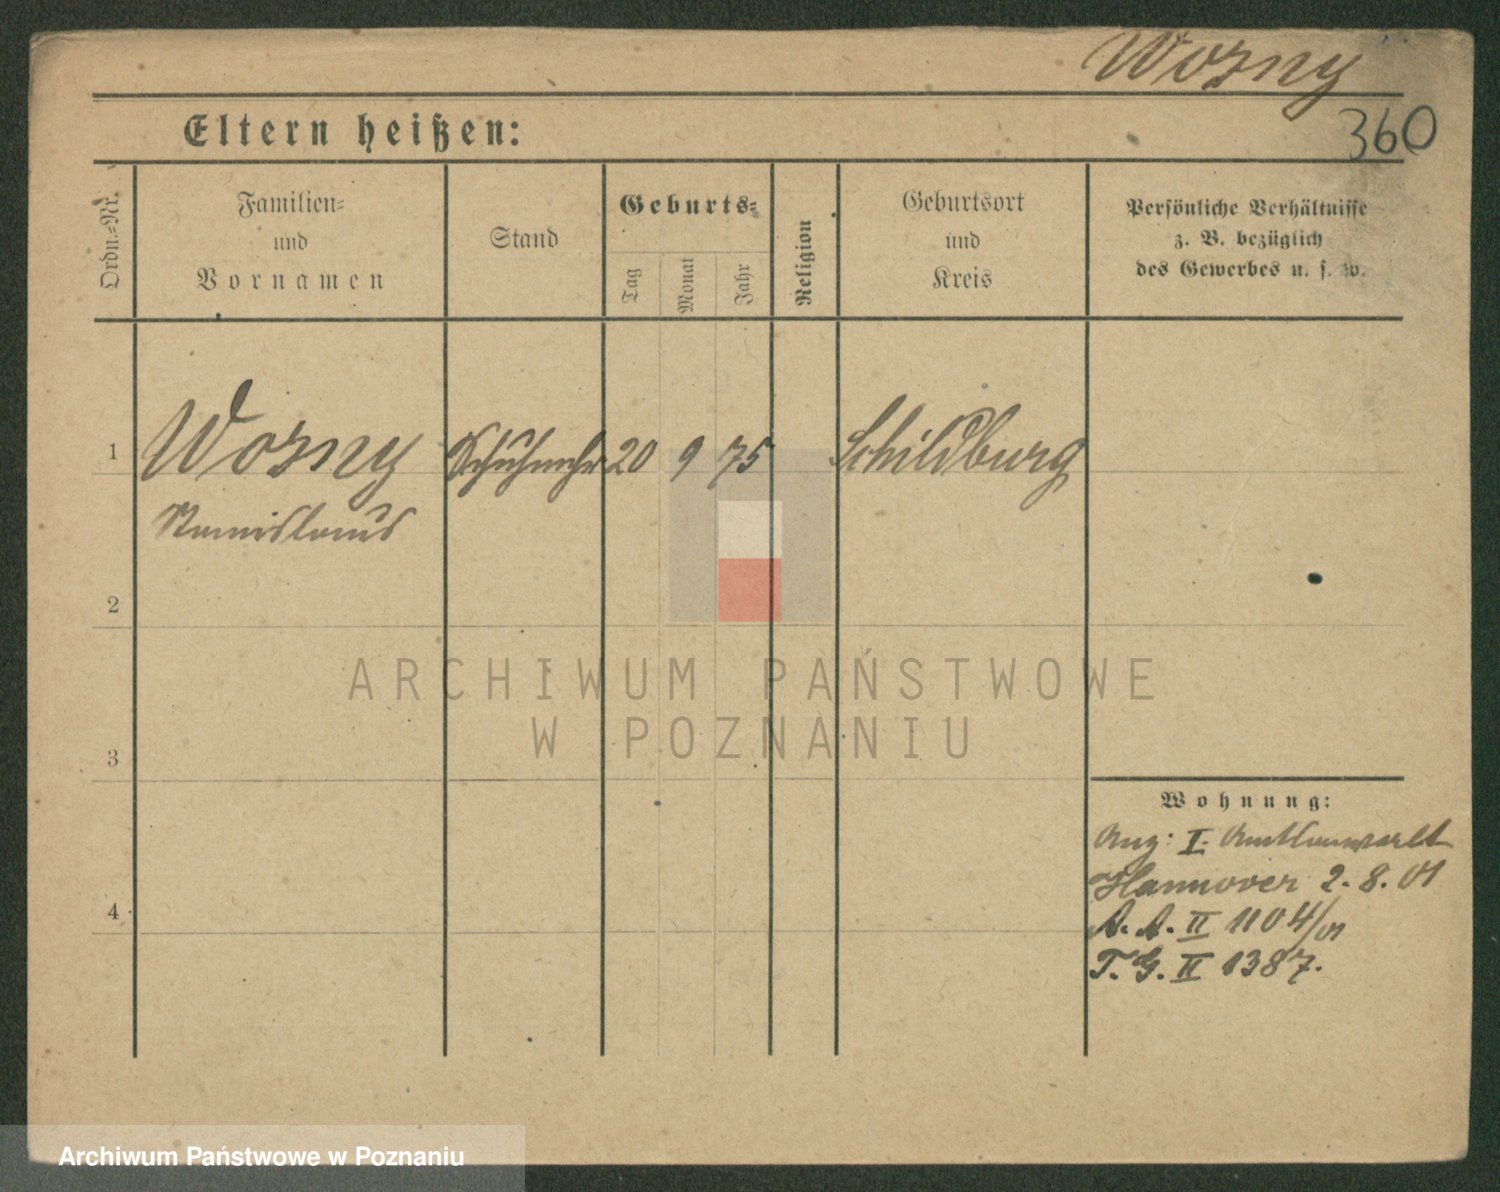 Worny
360
Eltern heißen:
Ordn.-Nr.
Familien-
und
Vornamen
Stand
Geburts-
Tag
Monat
Jahr
Religion
Geburtsort
und
Kreis
Persönliche Verhältnisse
z. B. bezüglich
des Gewerbes u. s. w.
1
Wozny
20
9
75
Schildburg
Stanislaus
2
3
4
Wohnung:
Anz: I. Amtsanwalt
Hannover 2. 8. 01
A. A. II 1104/01
T. G. II 1387.
ARCHIWUM PAŃSTWOWE
W POZNANIU
Archiwum Państwowe w Poznaniu